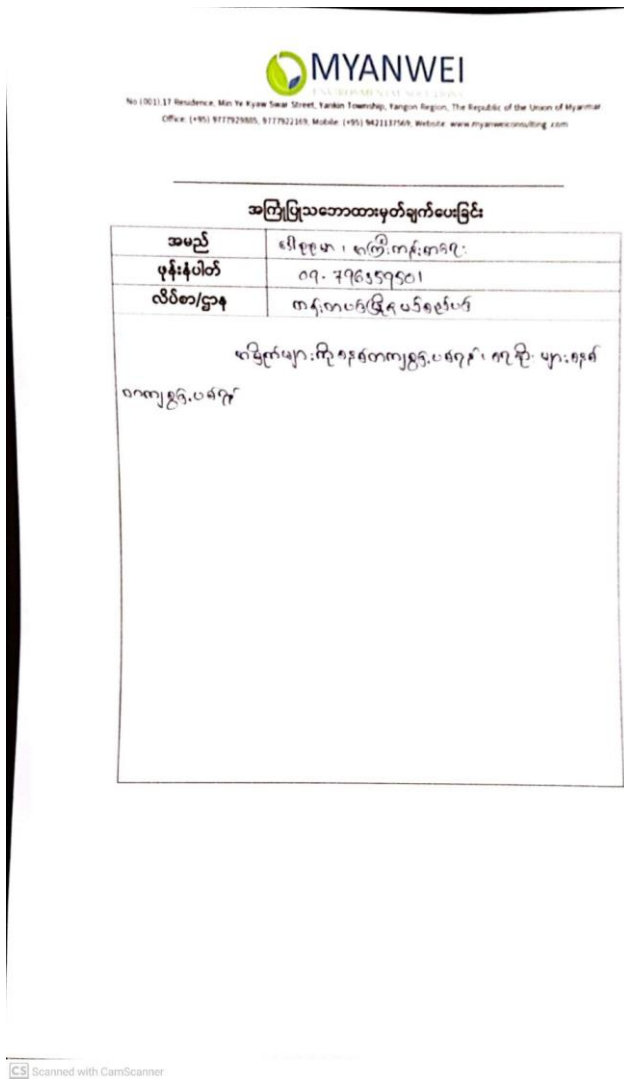 MYANWEI
ENVIRONMENTAL SOLUTIONS
No (001),17 Residence, Min Ye Kyaw Swar Street, Yankin Township, Yangon Region, The Republic of the Union of Myanmar
Office: (+95) 9777929885, 9777922169, Mobile: (+95) 9421137569, Website: www.myanweiconsulting.com
အကြံပြုသဘောထားမှတ်ချက်ပေးခြင်း
အမည်
ဖုန်းနံပါတ် 09-796359501
လိပ်စာ/ဌာန
များကို စနစ်တကျစွန့်ပစ်ရန်၊ ရေဆိုးများစနစ်
တကျစွန့်ပစ်ရန်
CS Scanned with CamScanner